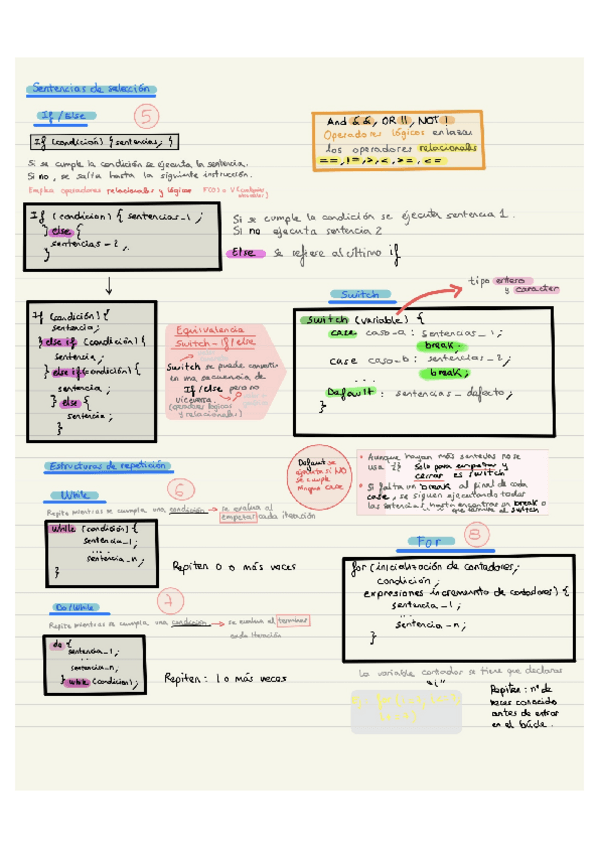 Sentencias de selección
If / else
5
If (condición) { sentencias; }
And &&, OR ||, NOT !
Operadores lógicos enlazan
los operadores relacionales
==, !=, >, <, >=, <=
Si se cumple la condición se ejecuta la sentencia.
Si no, se salta hasta la siguiente instrucción.
Emplea operadores relacionales y lógicos
If (condicion) { sentencias_1 ;
} else {
sentencias_2 ;
}
Si se cumple la condición se ejecuta sentencia 1.
Si no ejecuta sentencia 2
Else se refiere al último if
If (condición) {
sentencia;
} else if (condición) {
sentencia;
} else if (condición) {
sentencia;
} else {
sentencia;
}
Equivalencia
Switch - if/else
Switch se puede convertir
en una secuencia de
If/else pero no
viceversa.
(operadores lógicos
y relacionales)
Switch
tipo entero
y caracter
Switch (variable) {
case caso-a : sentencias_1;
break;
case caso-b : sentencias_2;
break;
Default : sentencias_defecto;
}
Default se
ejecuta si NO
se cumple
ningún case
• Aunque hayan más sentencias no se
usa {}. Solo para empezar y
cerrar es switch
• Si falta un break al final de cada
case, se siguen ejecutando todas
las setencias hasta encontrar un break o
Estructuras de repetición
While
6
Repite mientras se cumpla una condición → se evalua al
empezar cada iteración
While (condición) {
sentencia_1;
....
sentencia_n;
}
Repiten 0 o más veces
Do/While
7
Repite mientras se cumpla una condición → se evalua al terminar
cada iteración
do {
sentencia_1;
...
sentencia_n;
} while (condicion);
Repiten: 1 o más veces
For
8
for (inicialización de contadores;
condición;
expresiones incremento de contadores) {
sentencia_1;
...
sentencia_n;
}
La variable contador se tiene que declarar
"i"
Repiten: nº de
veces conocido
antes de entrar
en el bucle.